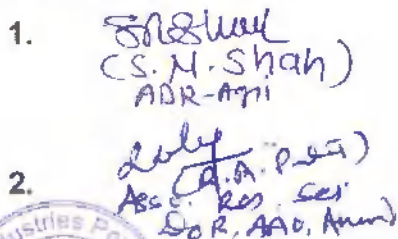 1.
(S. M. Shah)
ADR-Agri
2.
Asso. Res. Sci
DoR, AAU, Anand)
ustries Po